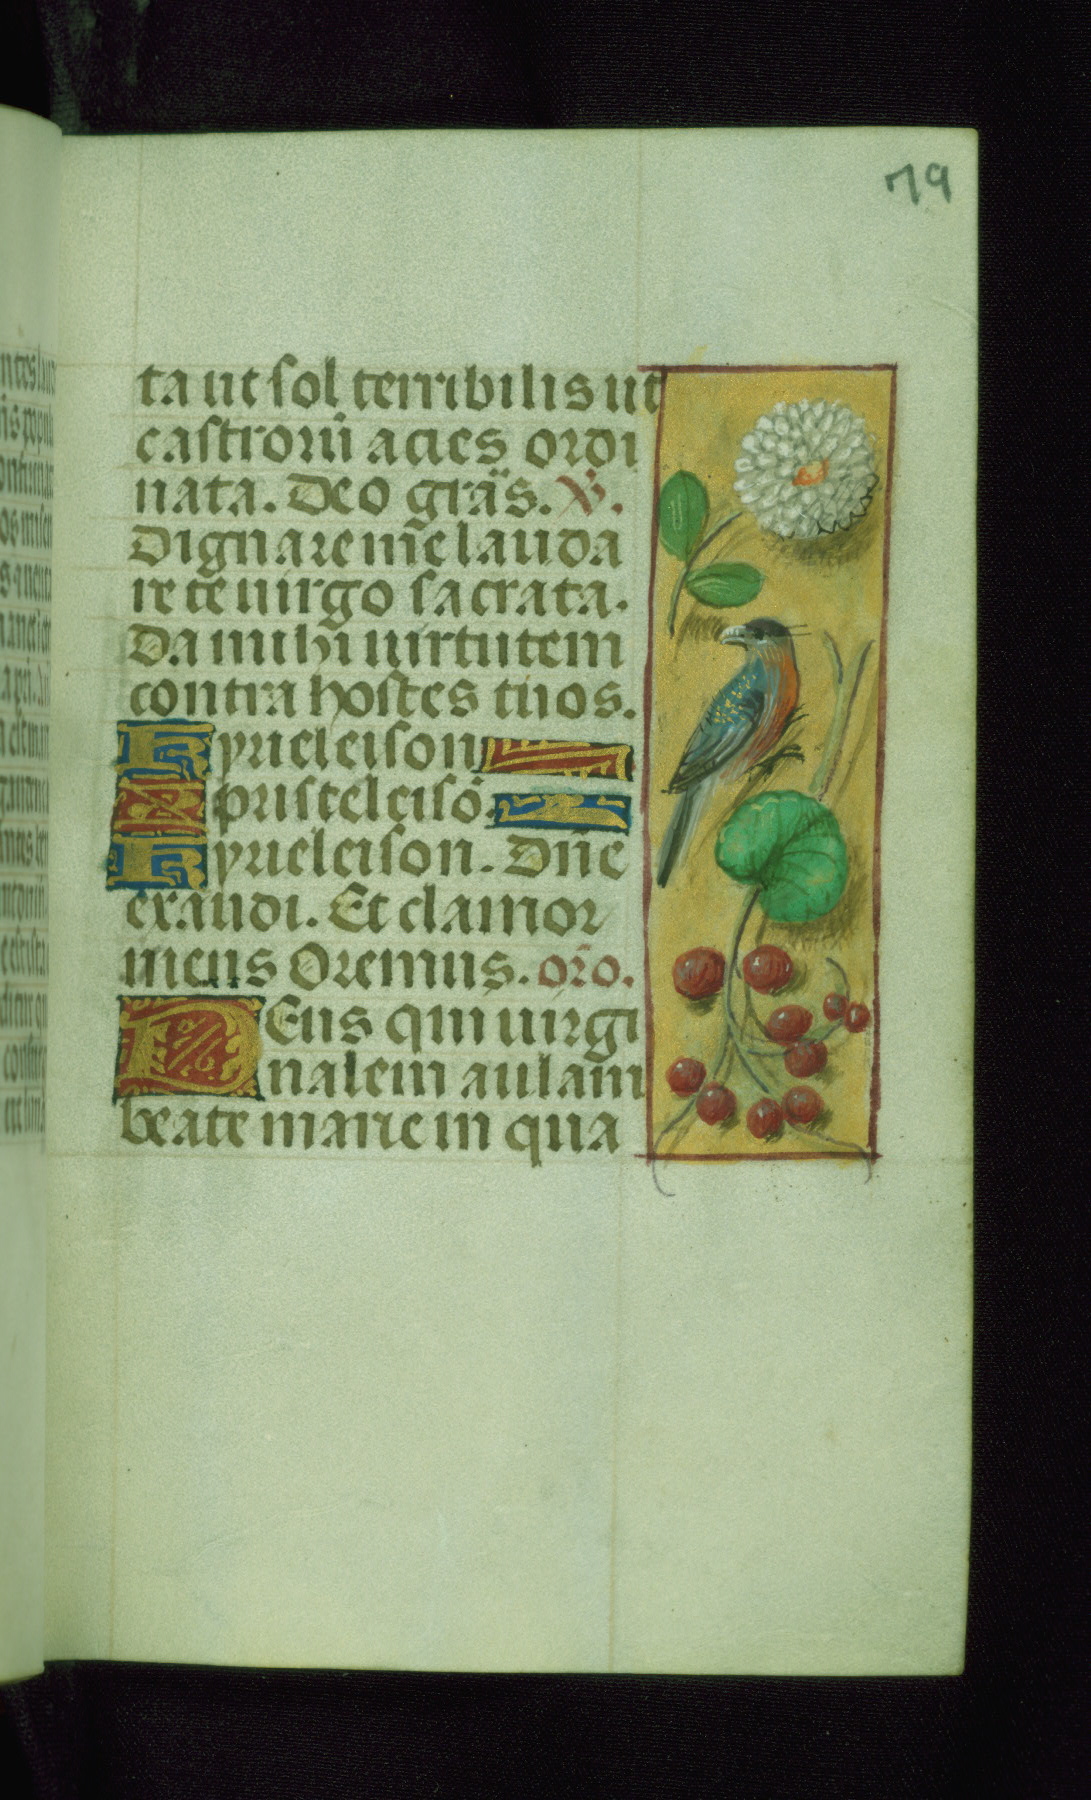 79
ta ut sol terribilis ut
castrorū acies ordi
nata. Deo grãs. V̄.
Dignare me lauda
re te uirgo sacrata.
Da michi uirtutem
contra hostes tuos.
Kyrieleison
Xpristeleisõ.
Kyrieleison. Dñe
exaudi. Et clamor
meus Oremus. oro̅.
DEus qui uirgi
nalem aulam
beate marie in qua